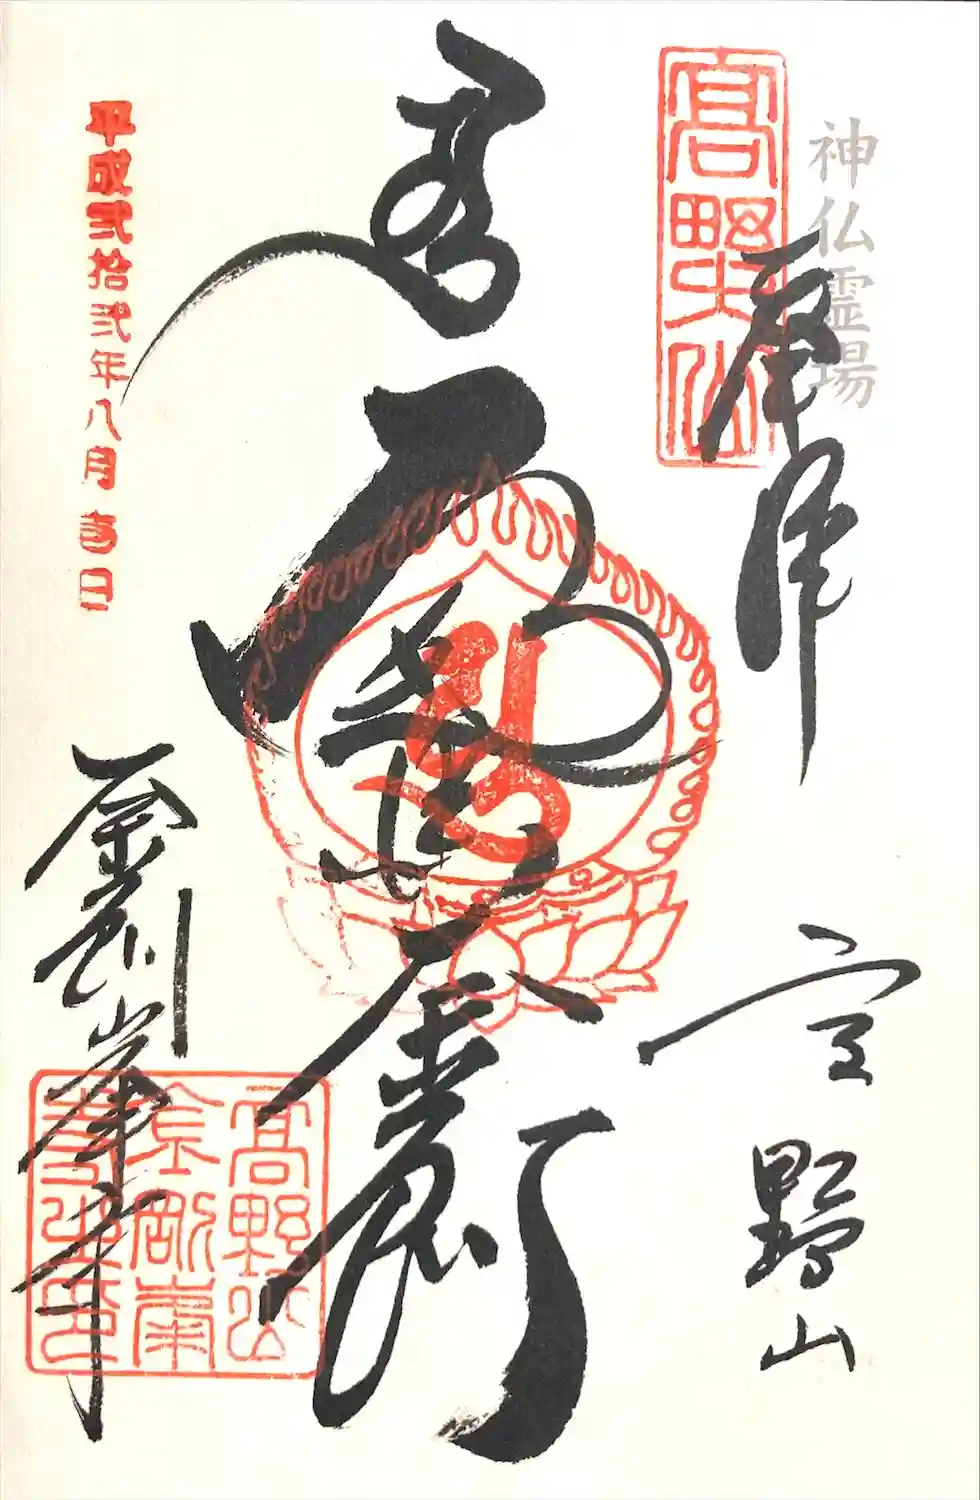 神仏霊場
髙野山
奉拝
高野山
金剛
平成弐拾弐年八月吉日
金剛峯寺
髙野山
金剛峯
寺之印